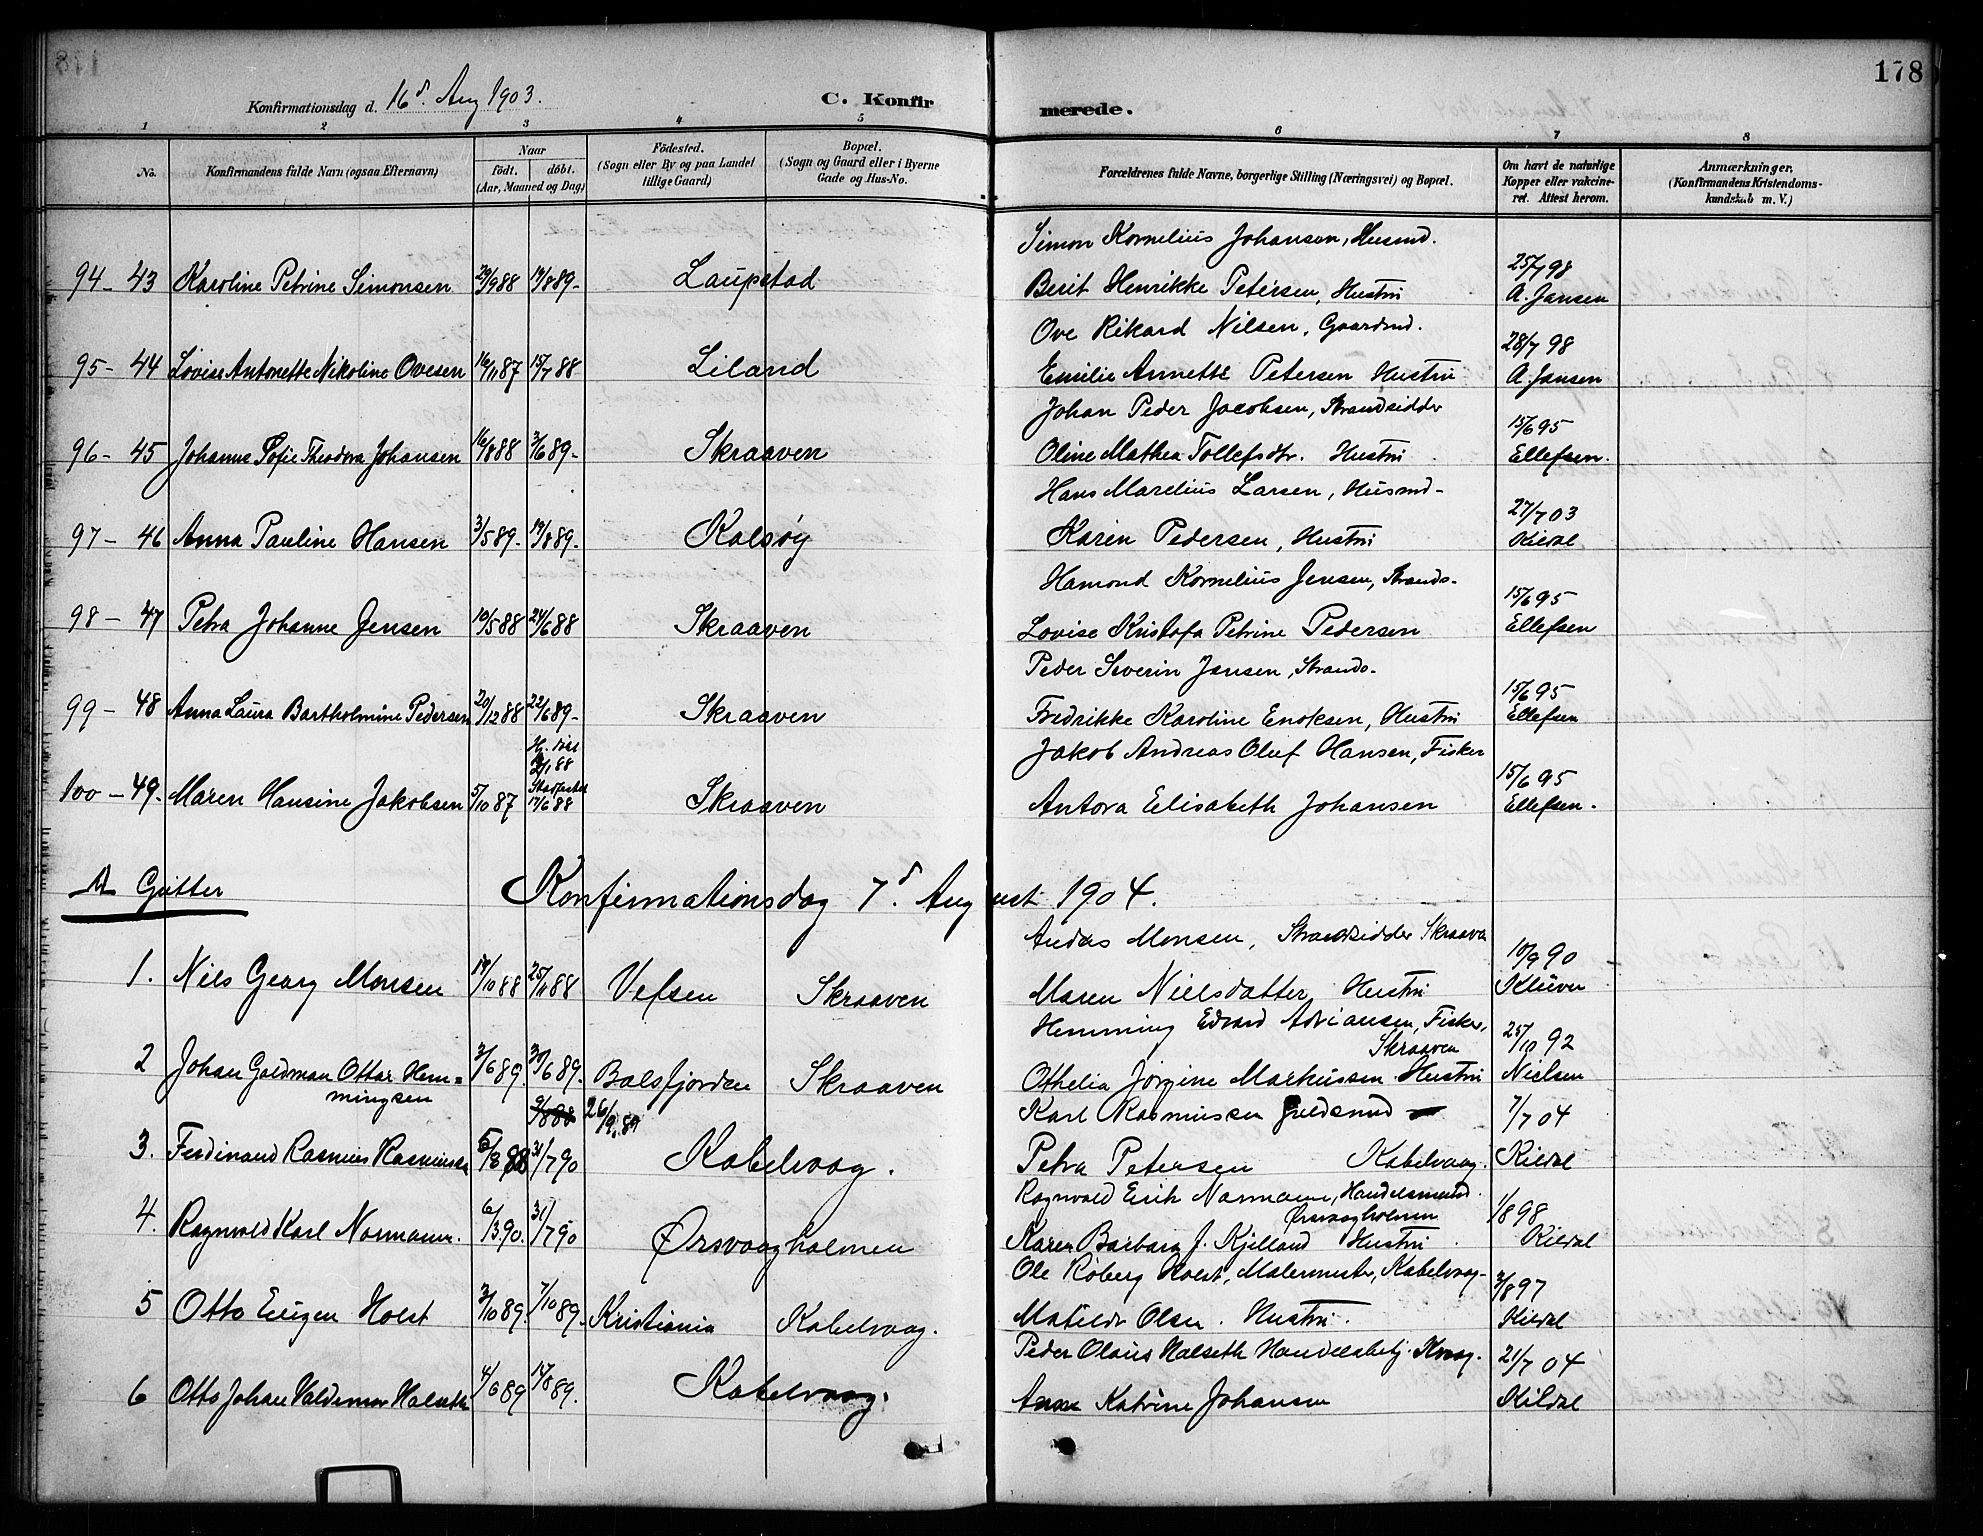 178
Konfirmationsdag d. 16d. Aug 1903.
C. Konfirmerede.
1 2 3 4 5 6 7 8
No.
Konfirmandens fulde Navn (ogsaa Efternavn)
Naar
födt. döbt.
(Aar, Maaned og Dag)
Födested.
(Sogn eller By og paa Landet
tillige Gaard)
Bopæl.
(Sogn og Gaard eller i Byerne
Gade og Hus-No.
Forældrenes fulde Navne, borgerlige Stilling (Næringsvei) og Bopæl.
Om havt de naturlige
Kopper eller vakcine-
ret. Attest herom.
Anmærkninger.
(Konfirmandens Kristendoms-
kundskab m. V.)
Simon Kornelius Johansen, Husmd.
94 - 43 Karoline Petrine Simonsen 29/9 88 19/8 89- Laupstad Berit Henrikke Petersen, Hustru 25/7 98 A. Jansen
Ove Rikard Nilsen, Gaardmd.
95 - 44 Lovise Antonette Nikoline Ovesen 16/11 87 15/7 88 Liland Emilie Annette Petersen Hustru 28/7 98 A. Jansen
Johan Peder Jacobsen, Strandsidder
96 - 45 Johanne Sofie Theodora Johansen 16/8 88 3/6 89- Skraaven Oline Mathea Tollefsdtr. Hustru 15/6 95 Ellefsen.
Hans Marelius Larsen, Husmd-
97 - 46 Anna Pauline Hansen 3/5 89- 19/8 89- Kalsøy Karen Pedersen, Hustru 27/7 03 Kildal
Hamond Kornelius Jensen, Strands-
98 - 47 Petra Johanne Jensen 19/5 88 24/6 88 Skraaven Lovise Kristofa Petrine Pedersen 15/6 95 Ellefsen
Peder Severin Jensen, Strands-
99 - 48 Anna Laura Bartholmine Pedersen 20/12 88 22/6 89- Skraaven Fredrikke Karoline Enoksen, Hustru 15/6 95 Ellefsen
Jakob Andreas Oluf Hansen, Fisker
100 - 49. Maren Hansine Jakobsen 5/10 87 Stadfæstet 17/6 88 Skraaven Antora Elisabeth Johansen 15/6 95 Ellefsen.
A Gutter
Konfirmationsdag 7d. August 1904.
Andas Monsen, Strandsidder Skraava
1. Niels Georg Monsen 19/10 88 25/11 88 Vefsen Skraaven Maren Nielsdatter Hustru 10/9 90 Klüver
Hemming Edvard Adriansen, Fisker,
Skraaven
2 Johan Goldman Ottar Hem=
mingsen 3/6 89. 30/6 89. Balsfjorden Skraaven Othelia Jörgine Markussen Hustru 25/10 92 Nielsen
Karl Rasmussen Guldsmd
3. Ferdinand Rasmus Rasmussen 31/7 90 26/9. 89 Kabelvaag. Petra Petersen Kabelvaag. 7/7 04 Kildal
Ragnvald Erik Normann, Handelsmand.
Ørsvaagholmen
4. Ragnvald Karl Normann. 6/3 90. 31/7 90 Ørsvaagholmen Karen Barbara J. Kjelland Hustru. 1/8 98 Kildal
Ole Roberg Holst, Malermester, Kabelvaag-
5 Otto Eugen Holst 3/10 89. 7/10 89. Kristiania Kabelvaag. Matilde Olsen. Hustru. 3/8 97 Kildal
Peder Olaus Halseth Handelsbetj. Kvaag.
6 Otto Johan Valdemar Halseth 4/6 89 14/8 89. Kabelvaag. Anne Katrine Johansen 21/7 04 Kildal